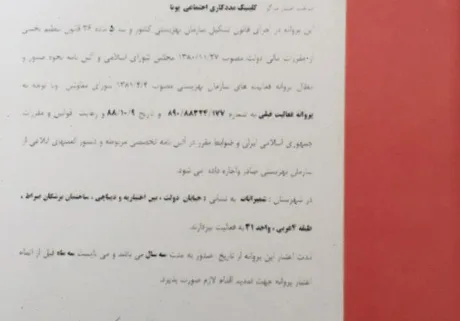 کلینیک مددکاری اجتماعی پونا
این پروانه در اجرای قانون تشکیل سازمان بهزیستی کشور و بند ۵ ماده ۲۶ قانون تنظیم بخشی
از مقررات مالی دولت مصوب ۱۳۸۰/۱۱/۲۷ مجلس شورای اسلامی و آئین نامه نحوه صدور و
ابطال پروانه فعالیت های سازمان بهزیستی مصوب ۱۳۸۱/۴/۴ شورای معاونین و با توجه به
پروانه فعالیت قبلی به شماره ۸۹۰/۸۸۳۲۴/۱۷۷ و تاریخ ۸۸/۱۰/۹ و رعایت قوانین و مقررات
جمهوری اسلامی ایران و ضوابط مقرر در آئین نامه تخصصی مربوطه و دستور العملهای ابلاغی از
سازمان بهزیستی صادر و اجازه داده می شود.
در شهرستان : شمیرانات به نشانی : خیابان دولت ، بین اختیاریه و دیباجی ، ساختمان پزشکان صراط ،
طبقه ۴ غربی ، واحد ۴۱ به فعالیت بپردازند.
مدت اعتبار این پروانه از تاریخ صدور به مدت سه سال می باشد و می بایست سه ماه قبل از اتمام
اعتبار پروانه جهت تمدید اقدام لازم صورت پذیرد.